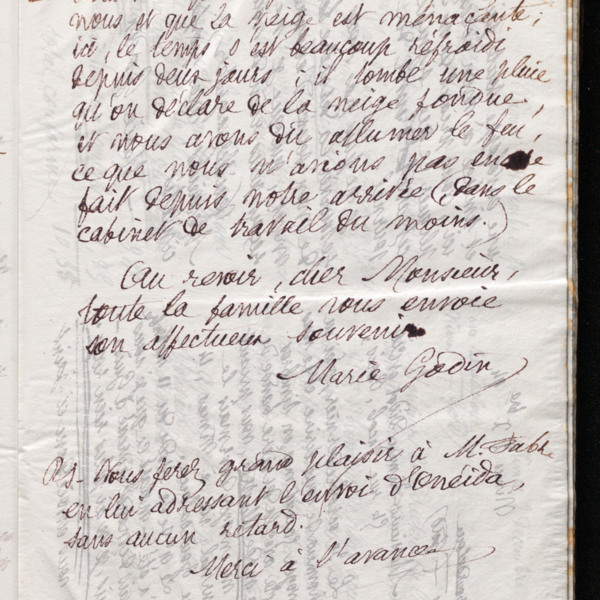 nous et que la neige est menaçante ;
ici, le temps s'est beaucoup refroidi
depuis deux jours ; il tombe une pluie
qu'on déclare de la neige fondue,
et nous avons dû allumer le feu,
ce que nous n'avions pas encore
fait depuis notre arrivée (, dans le
cabinet de travail du moins.)
Au revoir, cher Monsieur,
toute la famille vous envoie
son affectueux souvenir
Marie Godin
P.S- Vous ferez grand plaisir à M. Fabre
en lui adressant l'envoi d'Oneida,
sans aucun retard.
Merci à l'avance